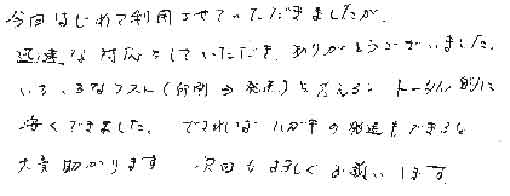 今回はじめて利用させていただきましたが、
迅速な対応をしていただき、ありがとうございました。
いろいろなコスト(印刷→発送)を考えると トータル的に
安くできました。 できればハガキの発送もできると
大変助かります 次回もよろしくお願いします